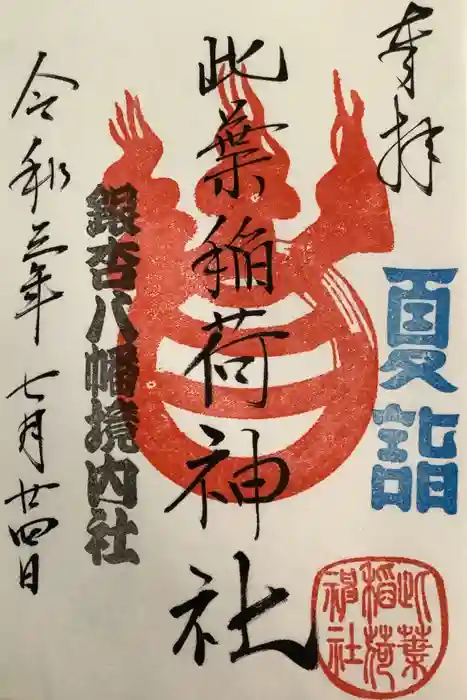 奉拝
夏詣
此葉稲荷神社
此葉
稲荷
神社
銀杏八幡境内社
令和三年 七月廿四日